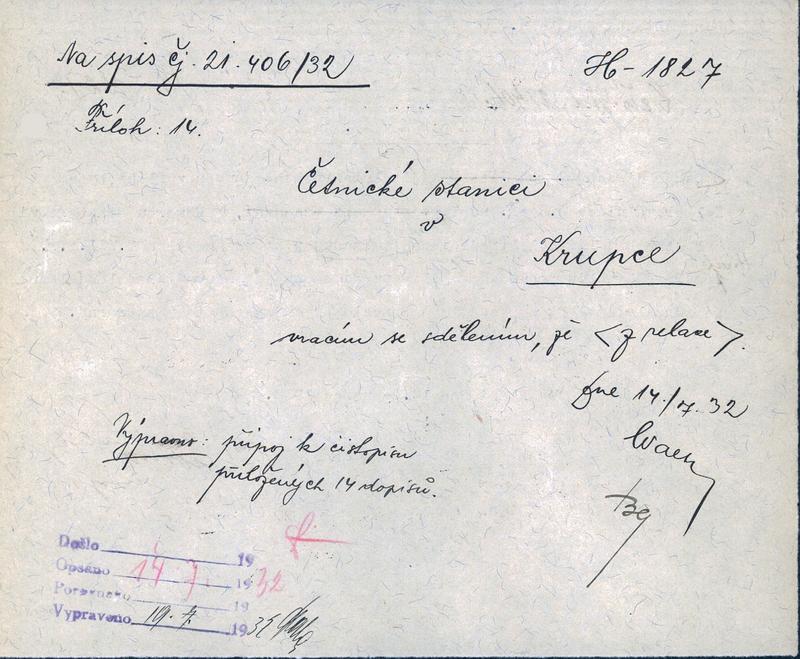 Na spis čj. 21.406/32
H-1827
Příloh: 14.
Četnické stanici
v
Krupce
vracím se sdělením, že <z relace>.
Dne 14./7. 32
Výpravno: připoj k čistopisu
přiložených 14 dopisů.
Došlo 19
Opsáno 14 7 1932
Porovnáno 19
Vypraveno 19. 7. 1932